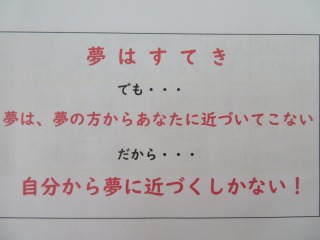 夢はすてき
でも・・・
夢は、夢の方からあなたに近づいてこない
だから・・・
自分から夢に近づくしかない！